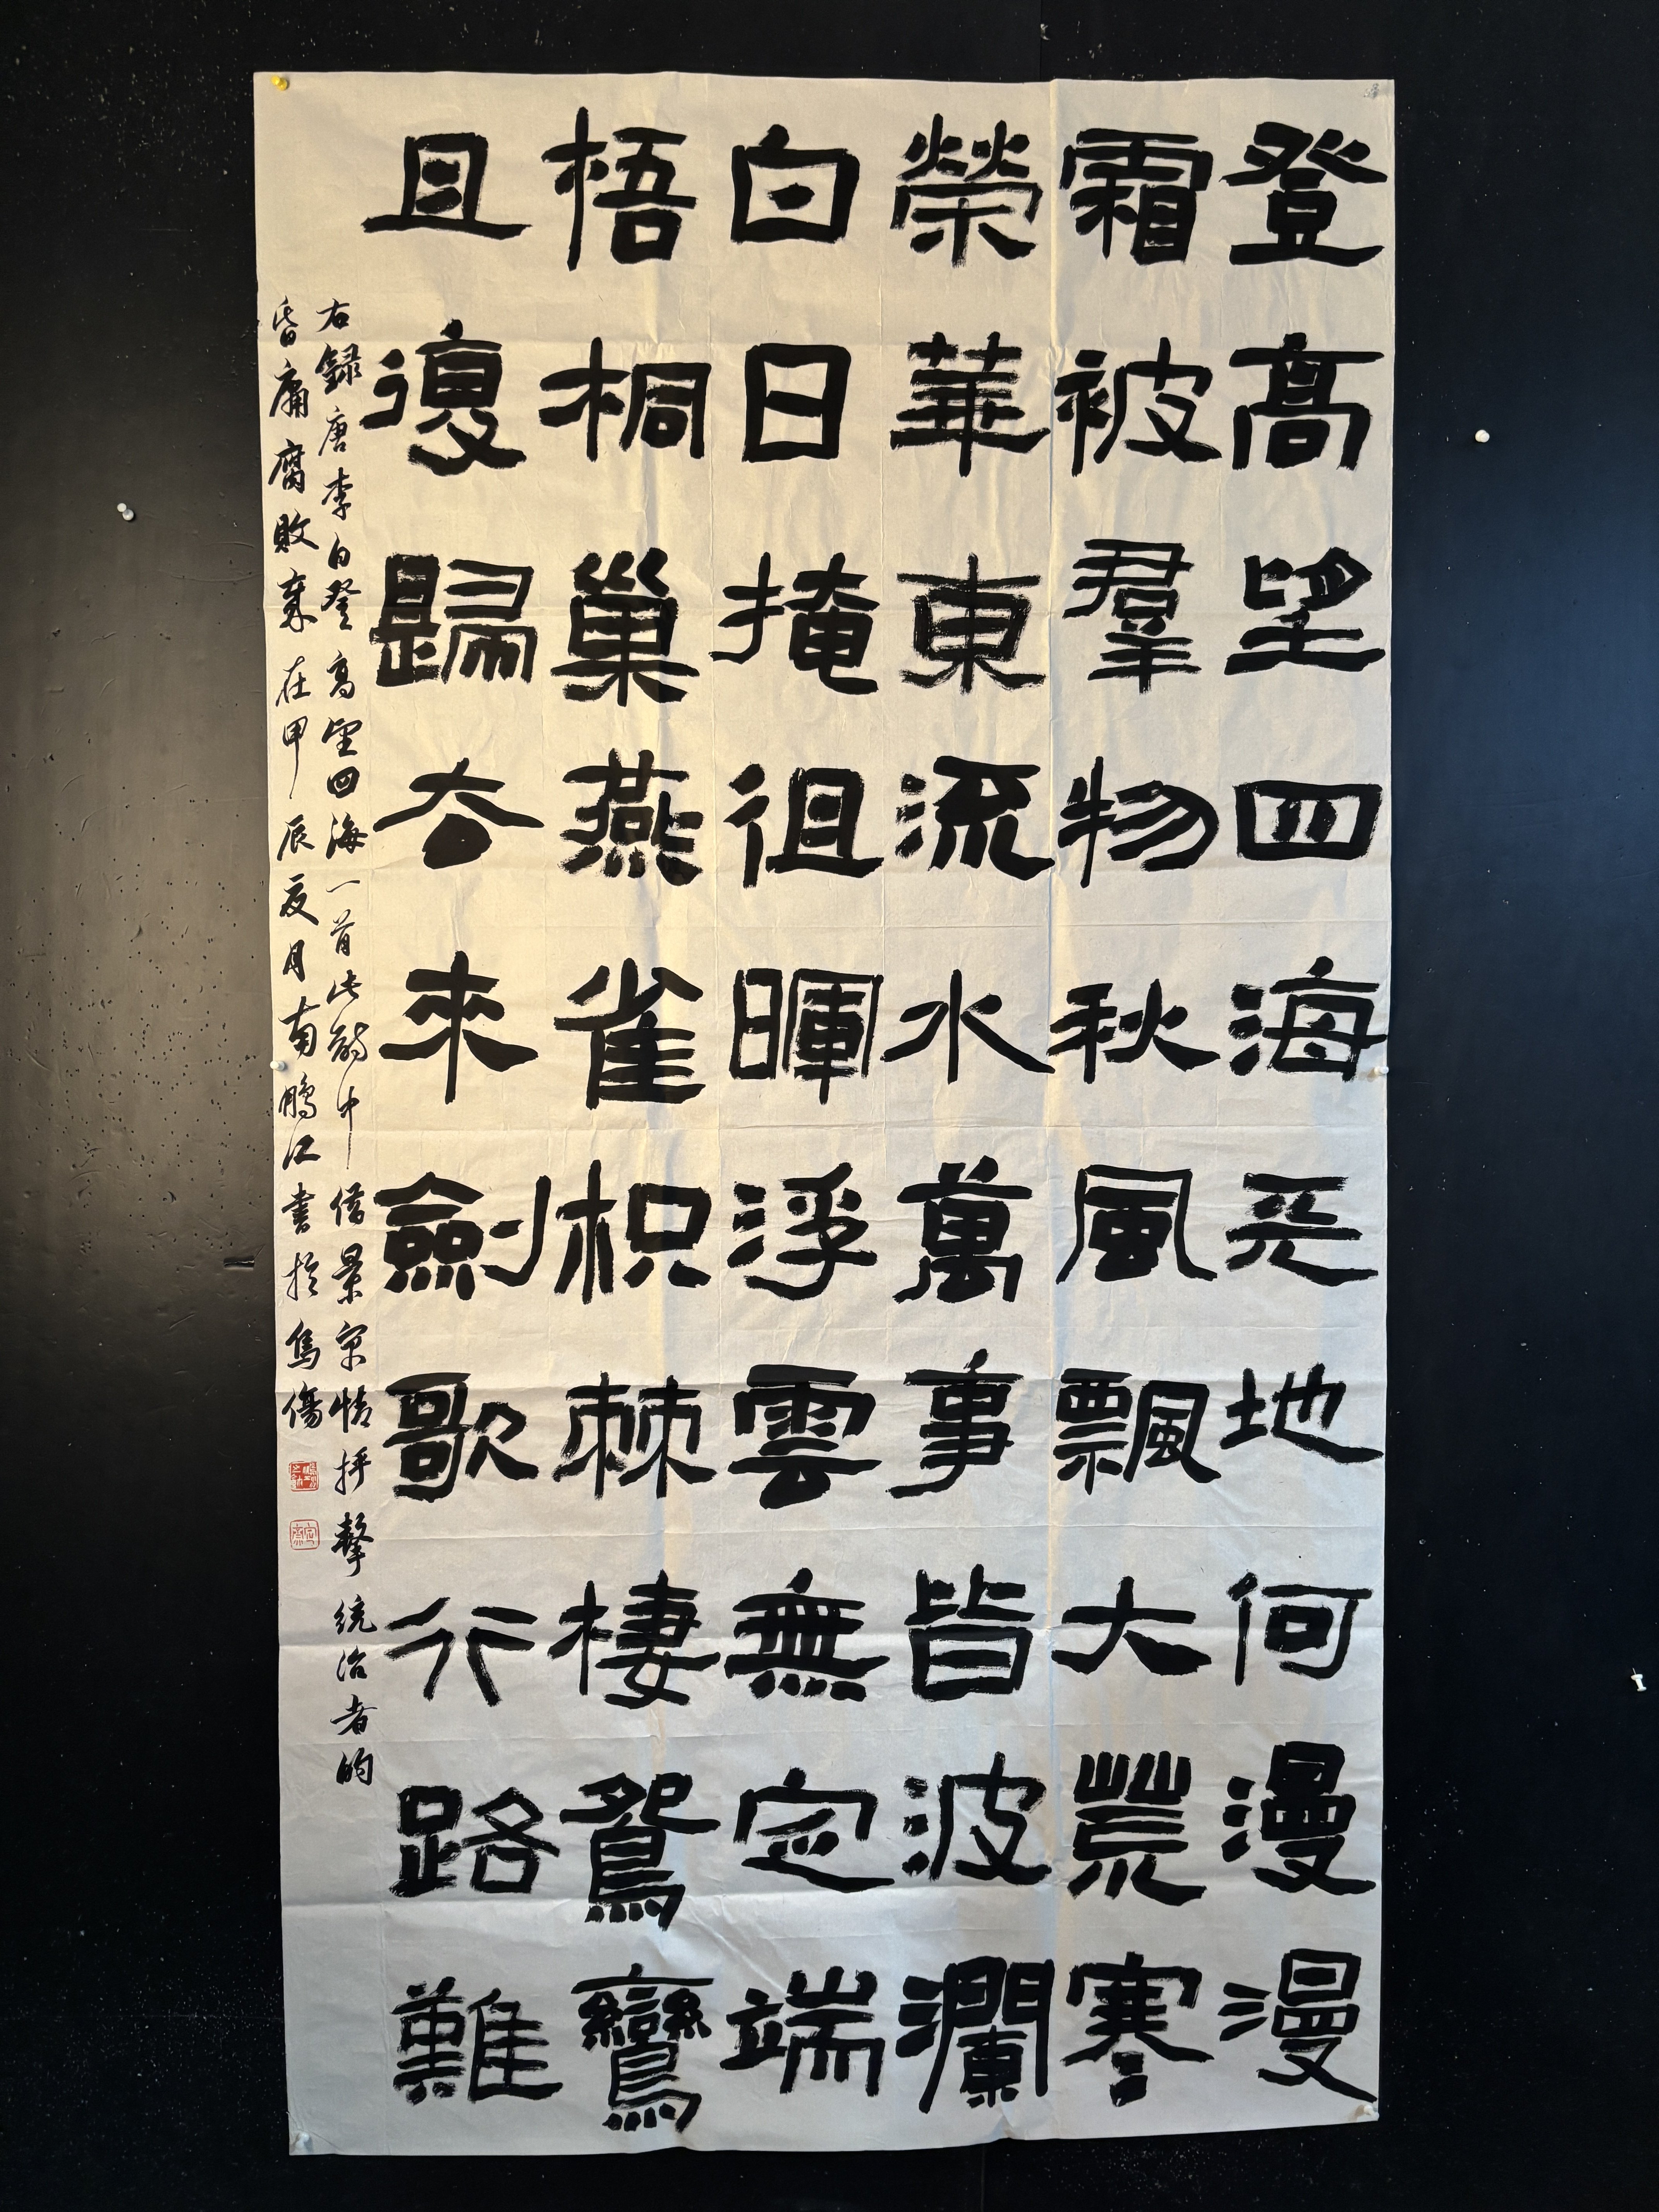 登高望四海天地何漫漫
霜被羣物秋風飄大荒寒
榮華東流水萬事皆波瀾
白日掩徂暉浮雲無定端
梧桐巢燕雀枳棘棲鴛鸞
且復歸去來劍歌行路難
右録唐李白登高望四海一首此詩中借景寓情抨擊統治者的
昏庸腐敗歲在甲辰夏月南鵬江書於烏傷